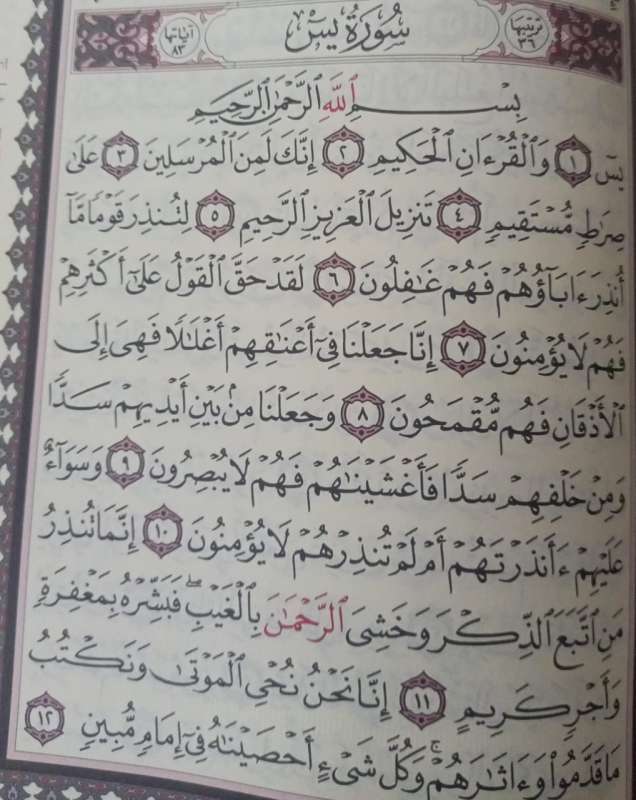 ترتيبها ٣٦
سُورَةُ يسٓ
آياتها ٨٣
بِسۡمِ ٱللَّهِ ٱلرَّحۡمَٰنِ ٱلرَّحِيمِ
يسٓ ١ وَٱلۡقُرۡءَانِ ٱلۡحَكِيمِ ٢ إِنَّكَ لَمِنَ ٱلۡمُرۡسَلِينَ ٣ عَلَىٰ
صِرَٰطٖ مُّسۡتَقِيمٖ ٤ تَنزِيلَ ٱلۡعَزِيزِ ٱلرَّحِيمِ ٥ لِتُنذِرَ قَوۡمٗا مَّآ
أُنذِرَ ءَابَآؤُهُمۡ فَهُمۡ غَٰفِلُونَ ٦ لَقَدۡ حَقَّ ٱلۡقَوۡلُ عَلَىٰٓ أَكۡثَرِهِمۡ
فَهُمۡ لَا يُؤۡمِنُونَ ٧ إِنَّا جَعَلۡنَا فِيٓ أَعۡنَٰقِهِمۡ أَغۡلَٰلٗا فَهِيَ إِلَى
ٱلۡأَذۡقَانِ فَهُم مُّقۡمَحُونَ ٨ وَجَعَلۡنَا مِنۢ بَيۡنِ أَيۡدِيهِمۡ سَدّٗا
وَمِنۡ خَلۡفِهِمۡ سَدّٗا فَأَغۡشَيۡنَٰهُمۡ فَهُمۡ لَا يُبۡصِرُونَ ٩ وَسَوَآءٌ
عَلَيۡهِمۡ ءَأَنذَرۡتَهُمۡ أَمۡ لَمۡ تُنذِرۡهُمۡ لَا يُؤۡمِنُونَ ١٠ إِنَّمَا تُنذِرُ
مَنِ ٱتَّبَعَ ٱلذِّكۡرَ وَخَشِيَ ٱلرَّحۡمَٰنَ بِٱلۡغَيۡبِۖ فَبَشِّرۡهُ بِمَغۡفِرَةٖ
وَأَجۡرٖ كَرِيمٍ ١١ إِنَّا نَحۡنُ نُحۡيِ ٱلۡمَوۡتَىٰ وَنَكۡتُبُ
مَا قَدَّمُواْ وَءَاثَٰرَهُمۡۚ وَكُلَّ شَيۡءٍ أَحۡصَيۡنَٰهُ فِيٓ إِمَامٖ مُّبِينٖ ١٢